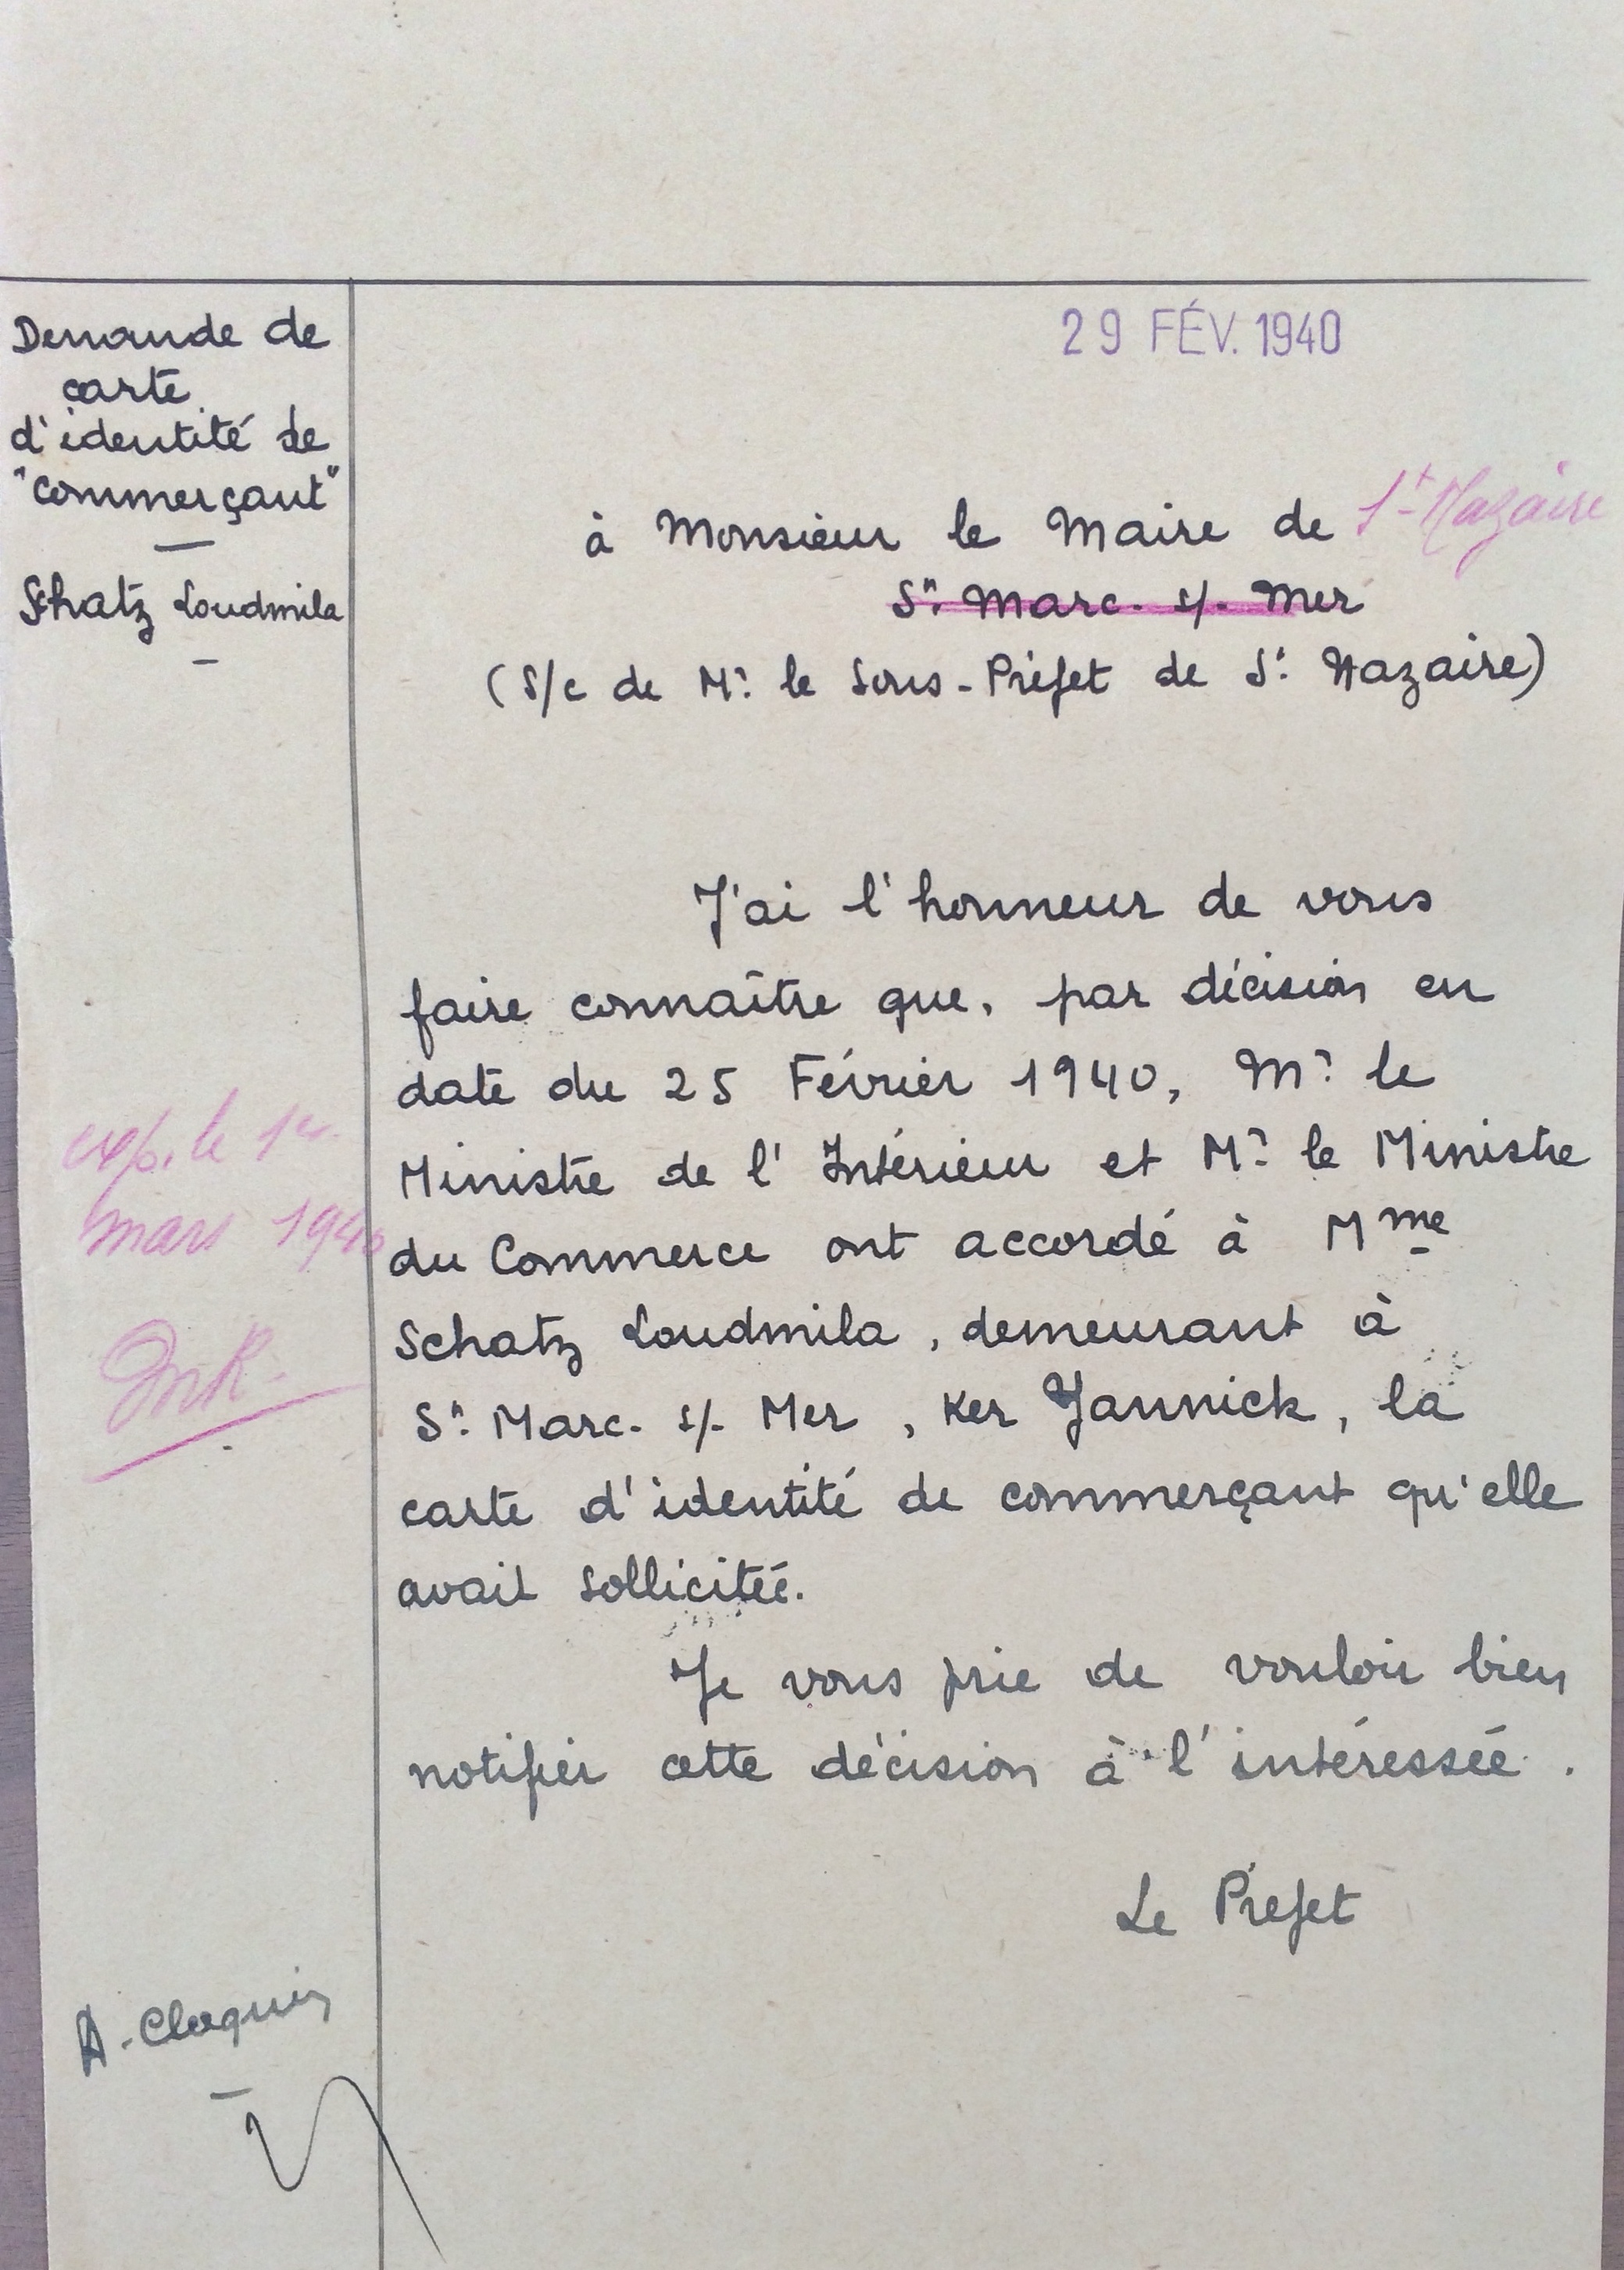 Demande de
carte
d'identité de
"commerçant"
Schatz Loudmila
29 FÉV. 1940
à Monsieur le Maire de St-Nazaire
St Marc. s/. Mer
(s/c de Mr le Sous-Préfet de St Nazaire)
J'ai l'honneur de vous
faire connaître que, par décision en
date du 25 Février 1940, Mr le
Ministre de l'Intérieur et Mr le Ministre
du Commerce ont accordé à Mme
Schatz Loudmila, demeurant à
St Marc. s/. Mer, Ker Yannick, la
carte d'identité de commerçant qu'elle
avait sollicitée.
Je vous prie de vouloir bien
notifier cette décision à l'intéressée.
Le Préfet
exp. le 1er
mars 1940
A. Cloquin